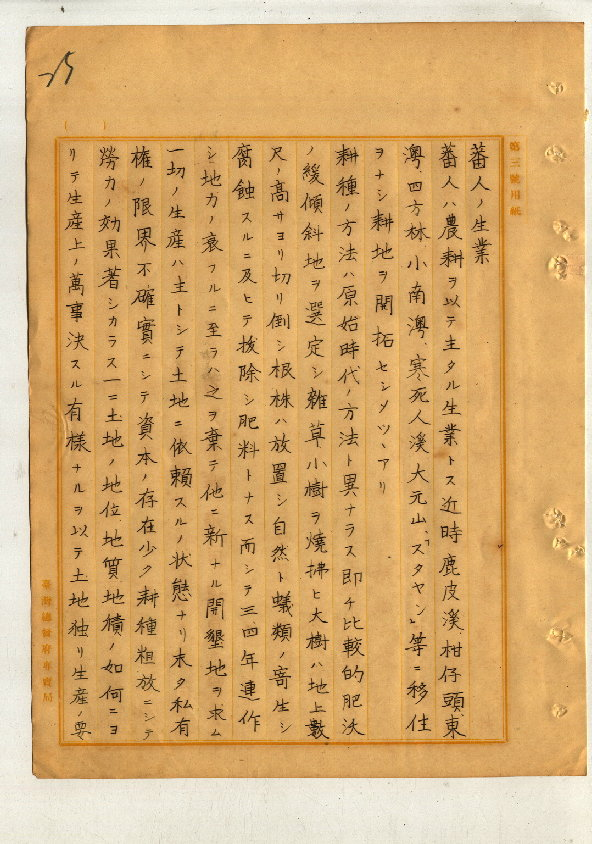 25
第三號用紙
蕃人ノ生業
蕃人ハ農耕ヲ以テ主タル生業トス近時鹿皮溪、柑仔頭、東
澳、四方林、小南澳、寒死人溪、大元山、「スタヤン」等ニ移住
ヲナシ耕地ヲ開拓セシメツヽアリ
耕種ノ方法ハ原始時代ノ方法ト異ナラス即チ比較的肥沃
ノ緩傾斜地ヲ選定シ雜草小樹ヲ燒拂ヒ大樹ハ地上數
尺ノ高サヨリ切リ倒シ根株ハ放置シ自然ト蟻類ノ寄生シ
腐蝕スルニ及ヒテ拔除シ肥料トナス而シテ三、四年連作
シ地力ノ衰フルニ至ラハ之ヲ棄テ他ニ新ナル開墾地ヲ求ム
一切ノ生産ハ主トシテ土地ニ依賴スルノ狀態ナリ未タ私有
權ノ限界不確實ニシテ資本ノ存在少ク耕種粗放ニシテ
勞力ノ効果著シカラス一ニ土地ノ地位、地質、地積ノ如何ニヨ
リテ生産上ノ萬事決スル有樣ナルヲ以テ土地独リ生産ノ要
臺灣總督府專賣局